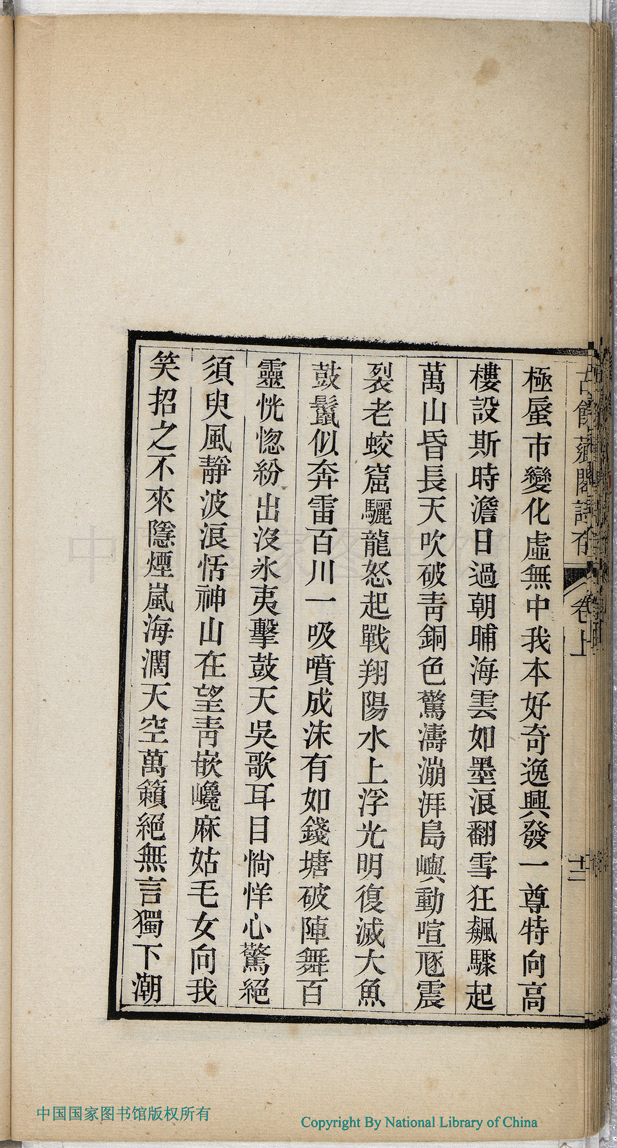 極蜃市變化虛無中我本好奇逸興發一尊特向高
樓設斯時澹日過朝晡海雲如墨浪翻雪狂飆驟起
萬山昏長天吹破靑銅色驚濤漰湃島嶼動喧豗震
裂老蛟窟驪龍怒起戰翔陽水上浮光明復滅大魚
鼓鬣似奔雷百川一吸噴成沫有如錢塘破陣舞百
靈恍惚紛出沒氷夷擊鼓天吳歌耳目惝恍心驚絕
須臾風靜波浪恬神山在望靑嵌巉麻姑毛女向我
笑招之不來隱煙嵐海濶天空萬籟絕無言獨下潮
卷上
十二
中国国家图书馆
中国国家图书馆版权所有
Copyright By National Library of China